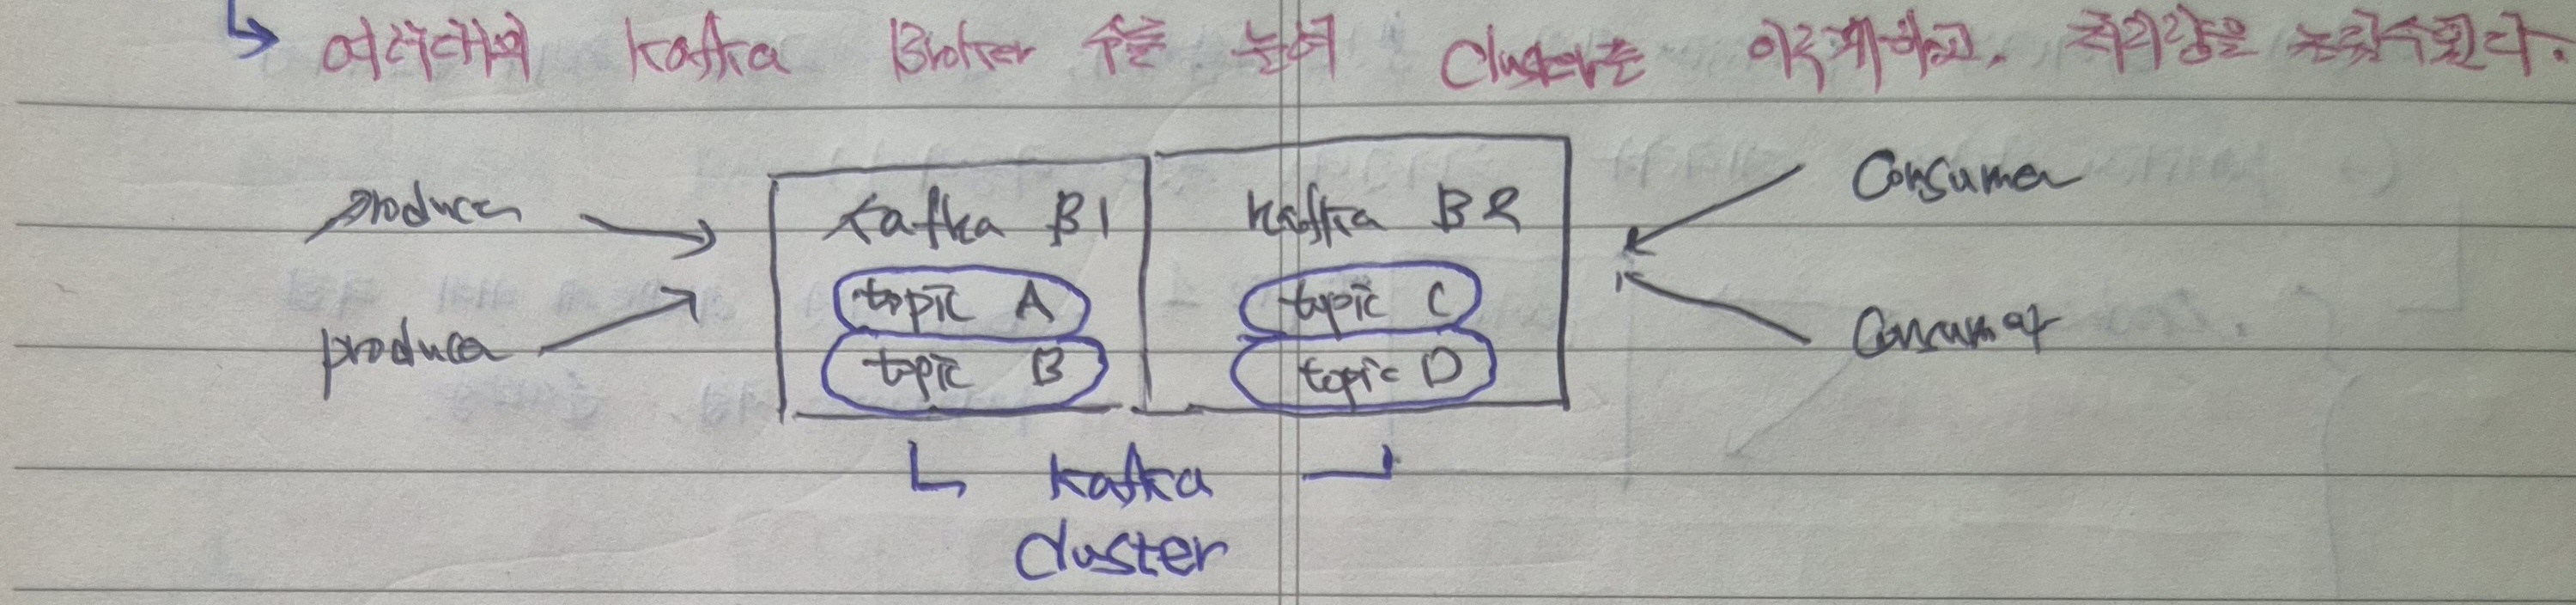 여러대의 Kafka Broker 수를 늘여 Cluster를 이루게하고, 처리량을 높힐수있다.
producer
Kafka B1
Kafka B2
Consumer
topic A
topic C
producer
topic B
topic D
Consumer
Kafka
cluster